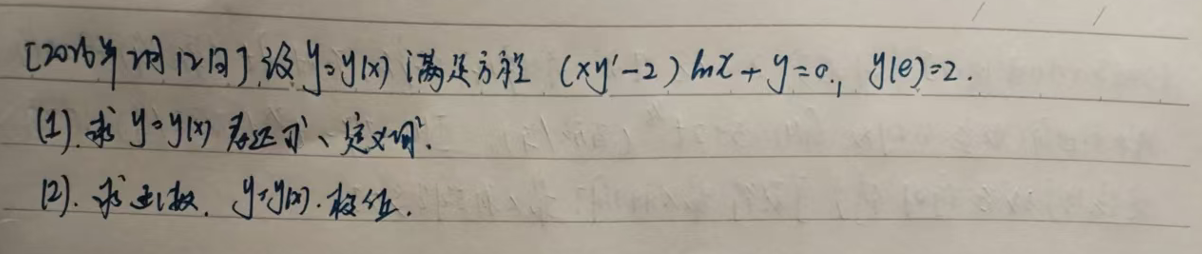 [2026年2月12日] 设 y=y(x) 满足方程 (xy'-2)lnx+y=0, y(e)=2.
(1). 求 y=y(x) 表达式、定义域.
(2). 求函数 y=y(x). 极值.